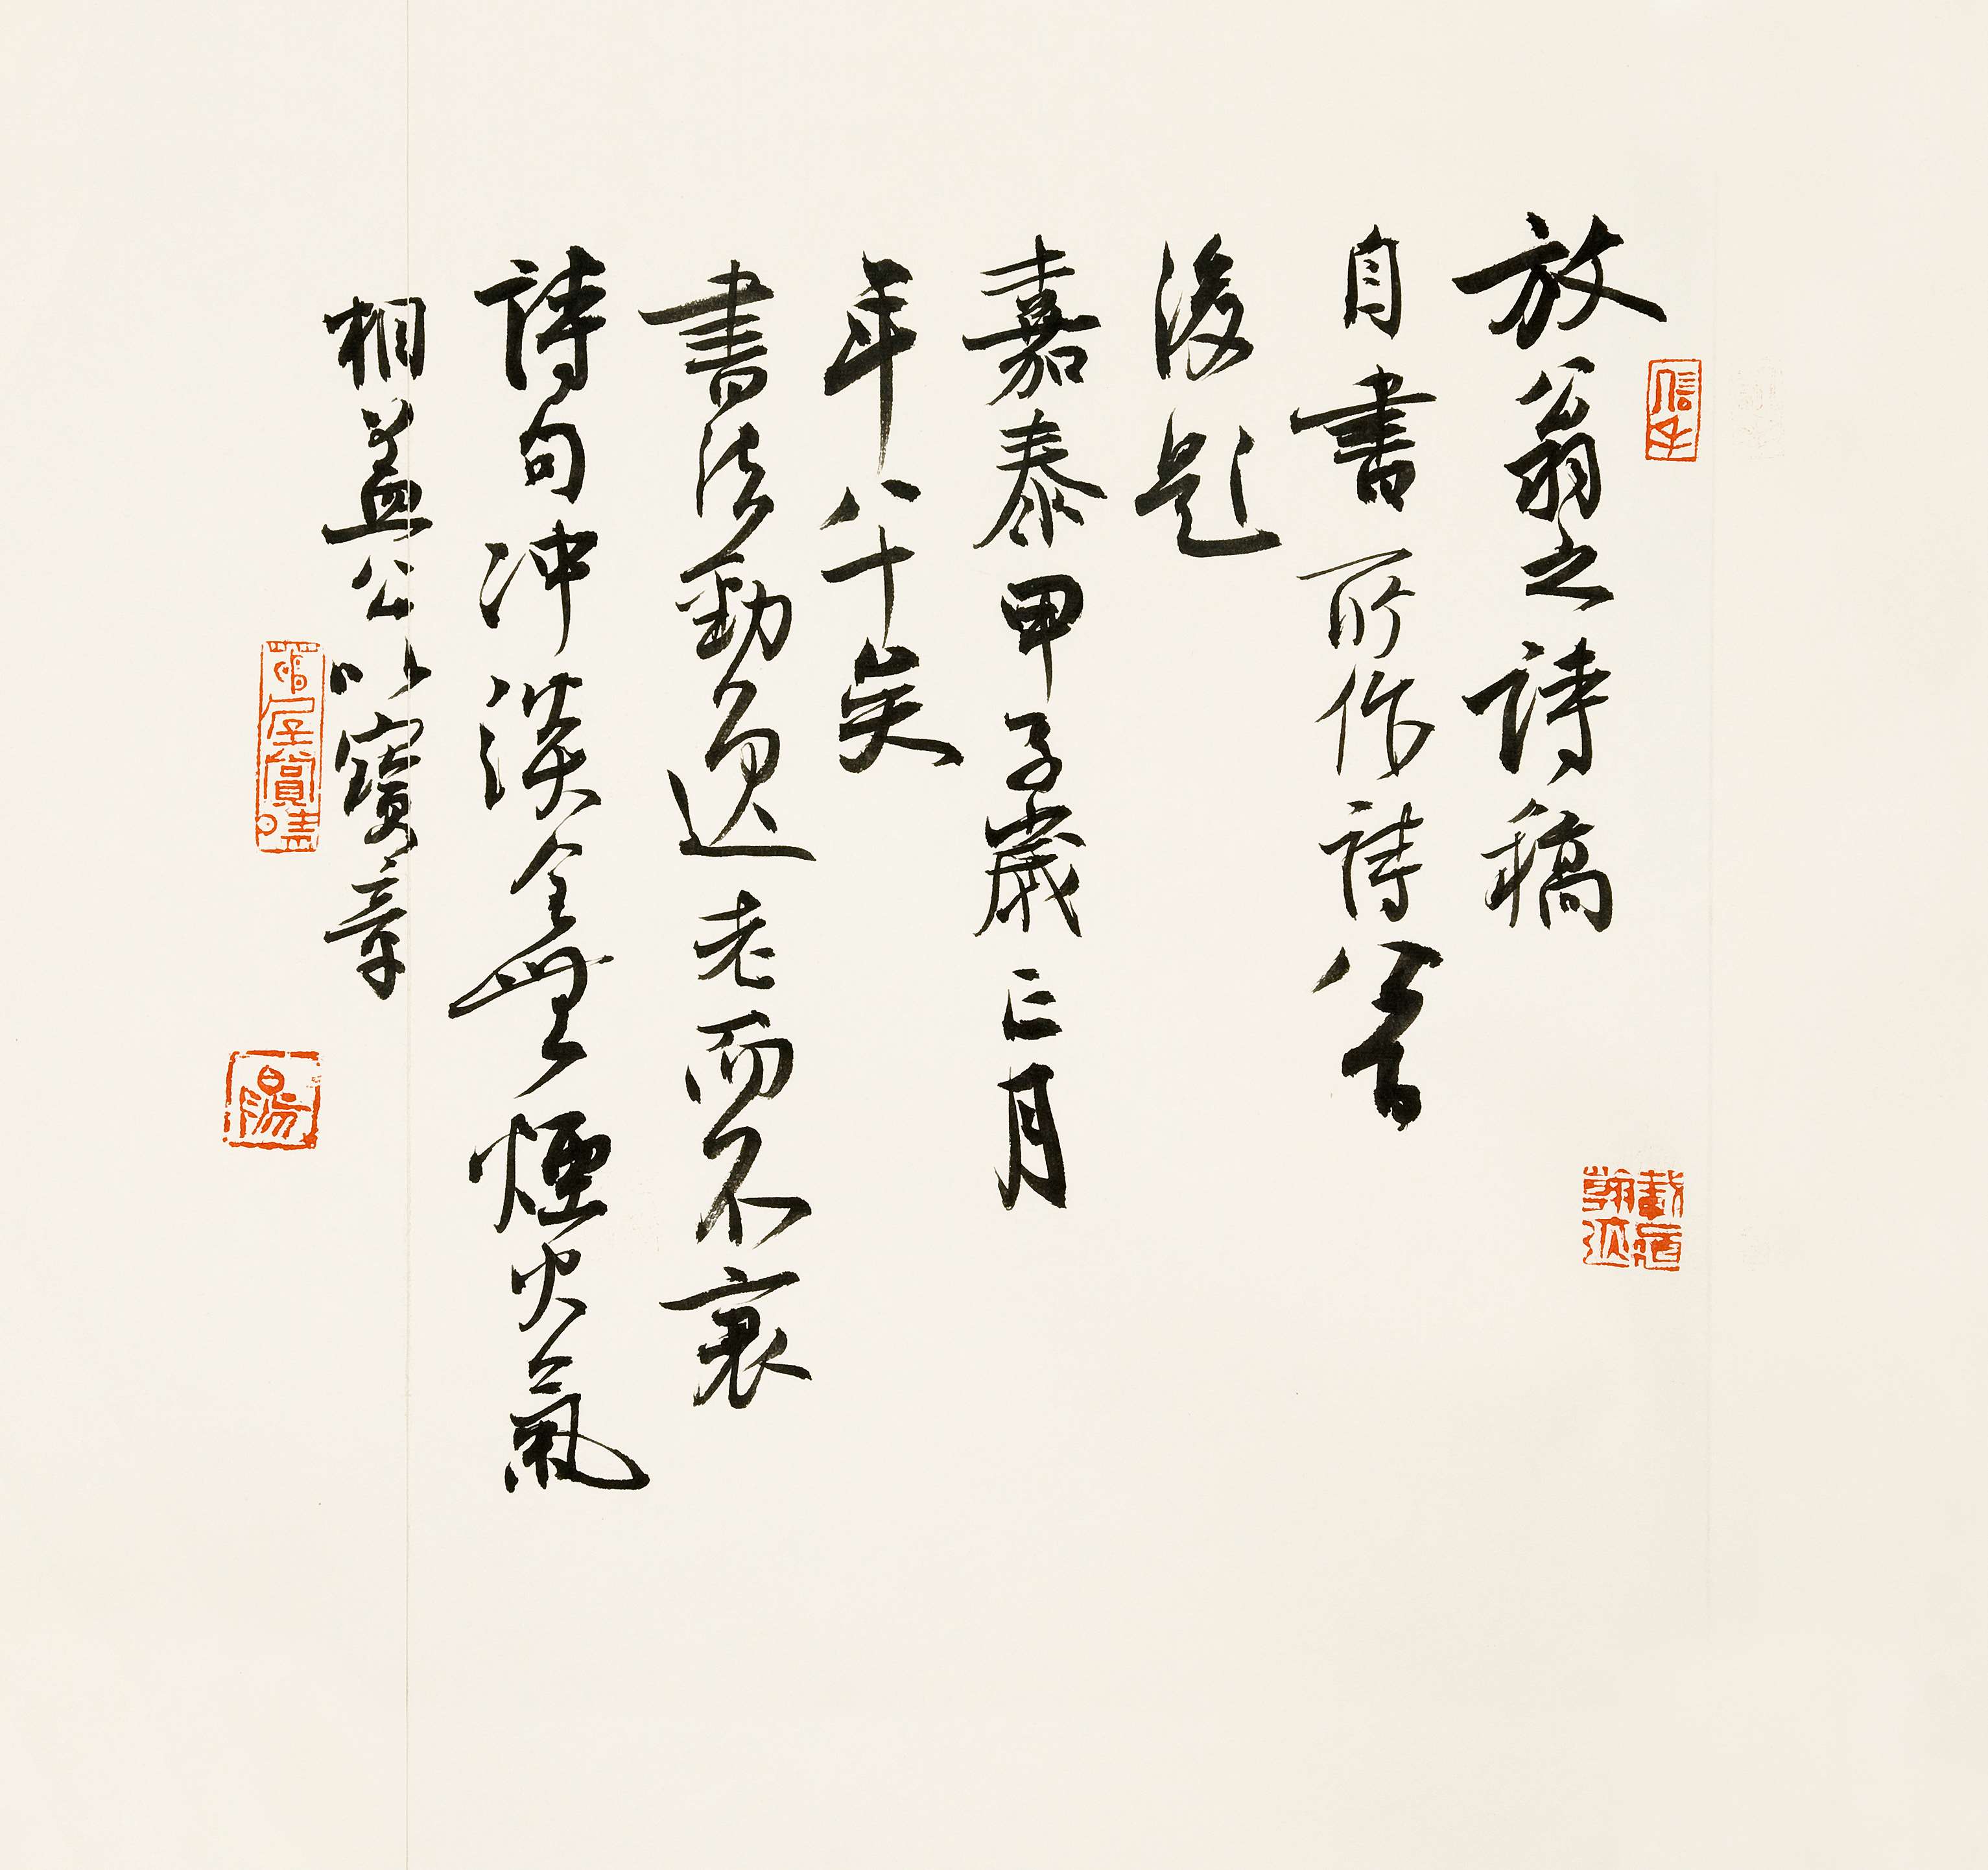 放翁之詩稿
自書所作詩
後題
嘉泰甲子歲正月
年八十矣
書法勁逸老而不衰
詩句冲淡全無煙火氣
相益公以寶章